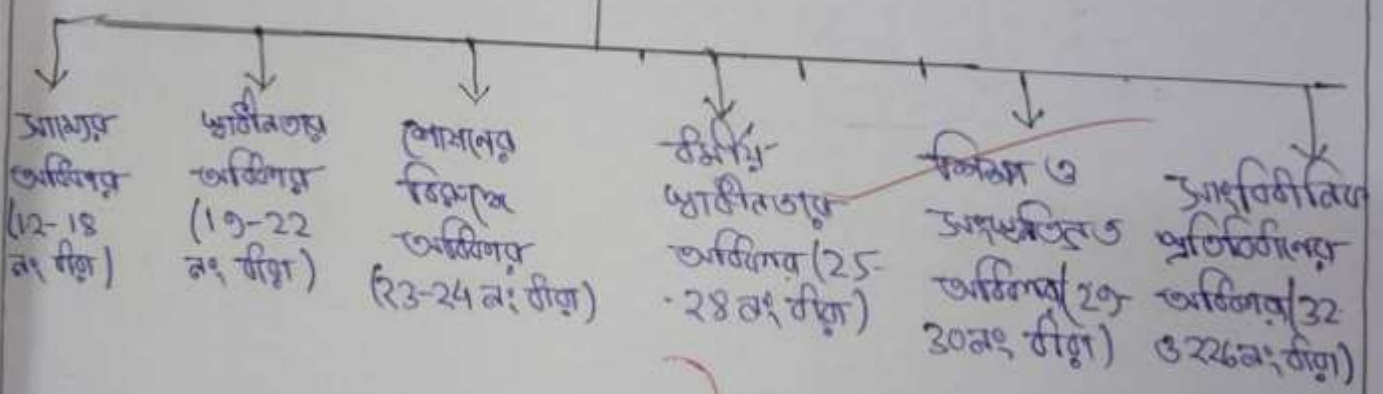 সাম্যের
অধিকার
(12-18
নং ধারা)
স্বাধীনতার
অধিকার
(19-22
নং ধারা)
শোষনের
বিরুদ্ধে
অধিকার
(23-24 নং ধারা)
ধর্মীয়
স্বাধীনতার
অধিকার (25-
28 নং ধারা)
শিক্ষা ও
সংস্কৃতিগত
অধিকার (29-
30 নং ধারা)
সাংবিধানিক
প্রতিবিধানের
অধিকার (32
ও 226 নং ধারা)